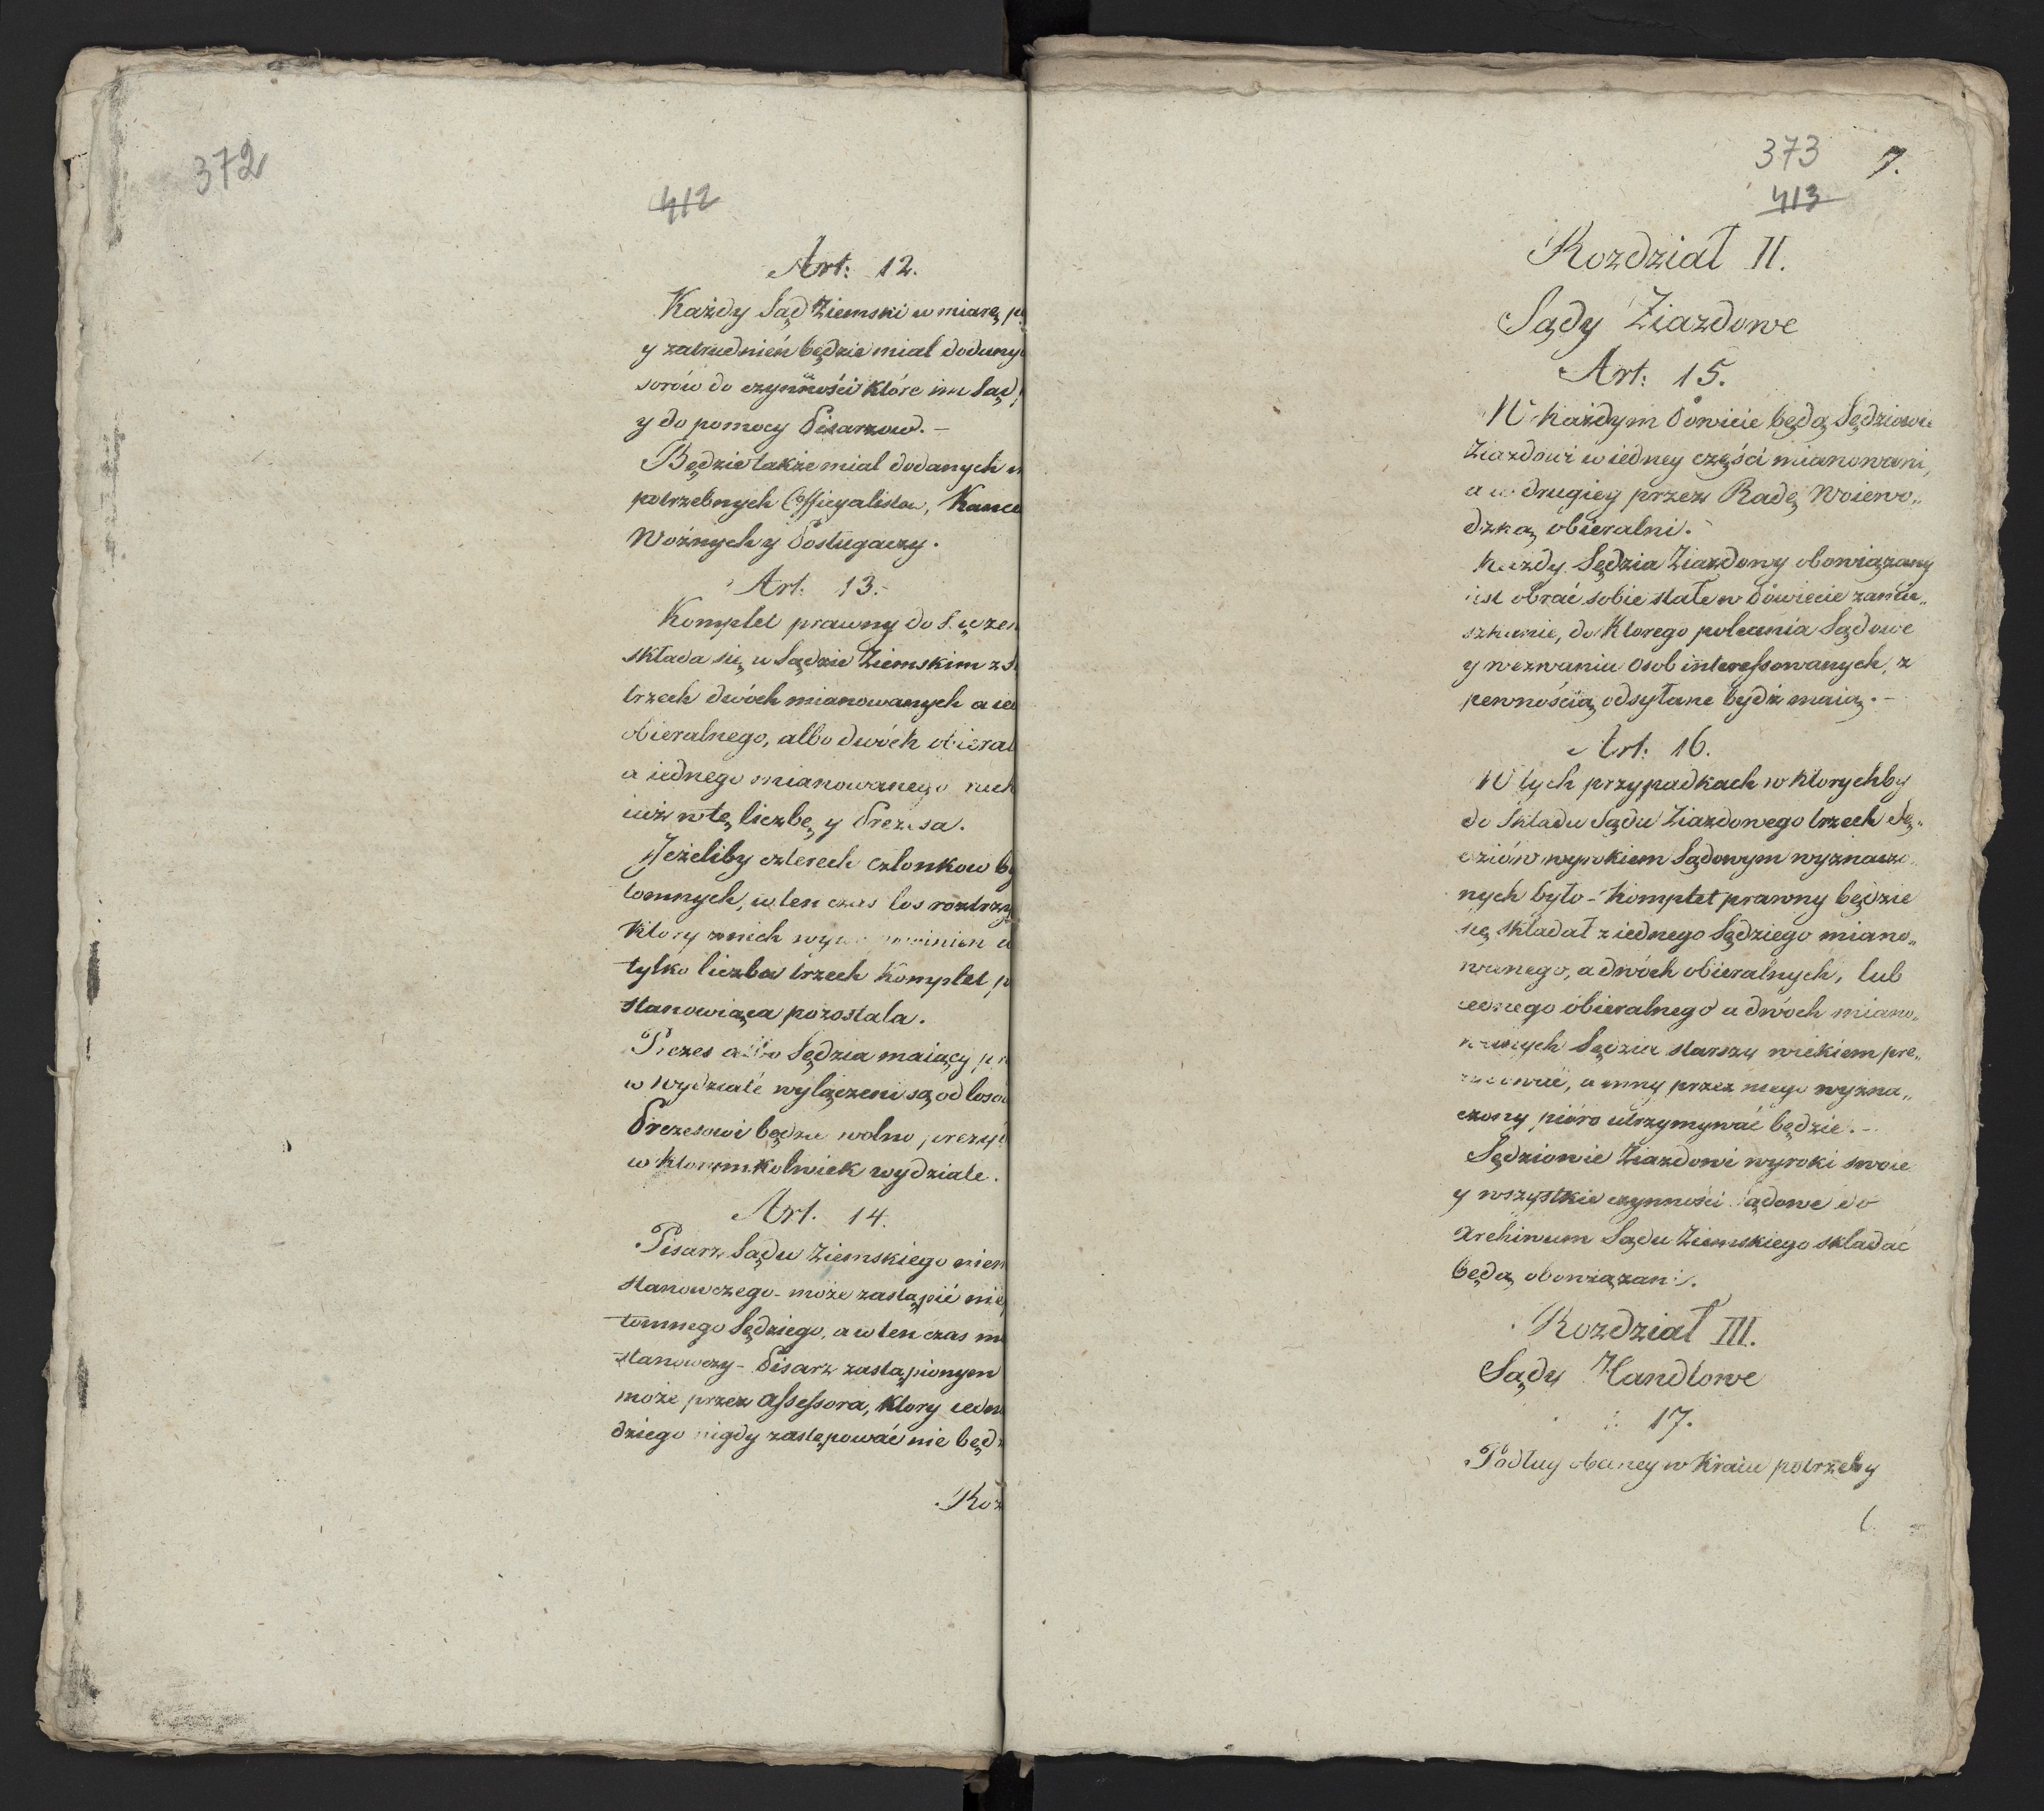 372
412
Art: 12.
Każdy Sąd Ziemski w miarę
y zatrudnień będzie miał
sorów do czynności które im Sąd
y do pomocy Pisarzow. –
Będzie także miał dodanych
potrzebnych Officyalistow,
Woźnych y Posługaczy.
Art: 13.
Komplet prawny do
składa się w Sądzie Ziemskim z
trzech dwóch mianowanych a
obieralnego, albo dwóch
a iednego mianowanego
iuż w tę liczbę y Prezesa.
Jeżeliby czterech członkow
tomnych, w ten czas los
który z nich
tylko liczba trzech Komplet
stanowiąca pozostała.
Prezes albo Sędzia maiący
w wydziale wyłączeni są od
Prezesowi będzie wolno
w którymkolwiek wydziale.
Art. 14.
Pisarz Sądu Ziemskiego
stanowczego – może zastąpić
tomnego Sędziego, a w ten czas
stanowczy – Pisarz zastąpionym
może przez Assessora, ktory
dziego nigdy zastępować nie
373 7.
413
Rozdział II.
Sądy Ziazdowe
Art: 15.
W każdym Powiecie będą Sędziowie
Ziazdowi w iedney części mianowani,
a w drugiey przez Radę Woiewo„
dzką obieralni.
Każdy Sędzia Ziazdowy obowiązany
iest obrać sobie stałe w Powiecie zamie„
szkanie, do ktorego polecenia Sądowe
y wezwania osob interessowanych, z
pewnością odsyłane bydź maią. –
Art: 16.
W tych przypadkach w ktorychby
do Składu Sądu Ziazdowego trzech Sę„
dziów wyrokiem Sądowym wyznaczo„
nych było – Komplet prawny będzie
się składał z iednego Sędziego miano„
wanego, a dwóch obieralnych, lub
iednego obieralnego a dwóch miano„
wanych Sędzia starszy wiekiem pre„
zydować, a inny przez niego wyzna„
czony pióro utrzymywać będzie. –
Sędziowie Ziazdowi wyroki swoie
y wszystkie czynności Sądowe do
Archiwum Sądu Ziemskiego składać
będą obowiązani.
Rozdział III.
Sądy Handlowe
17.
Podług obecney w Kraiu potrzeby